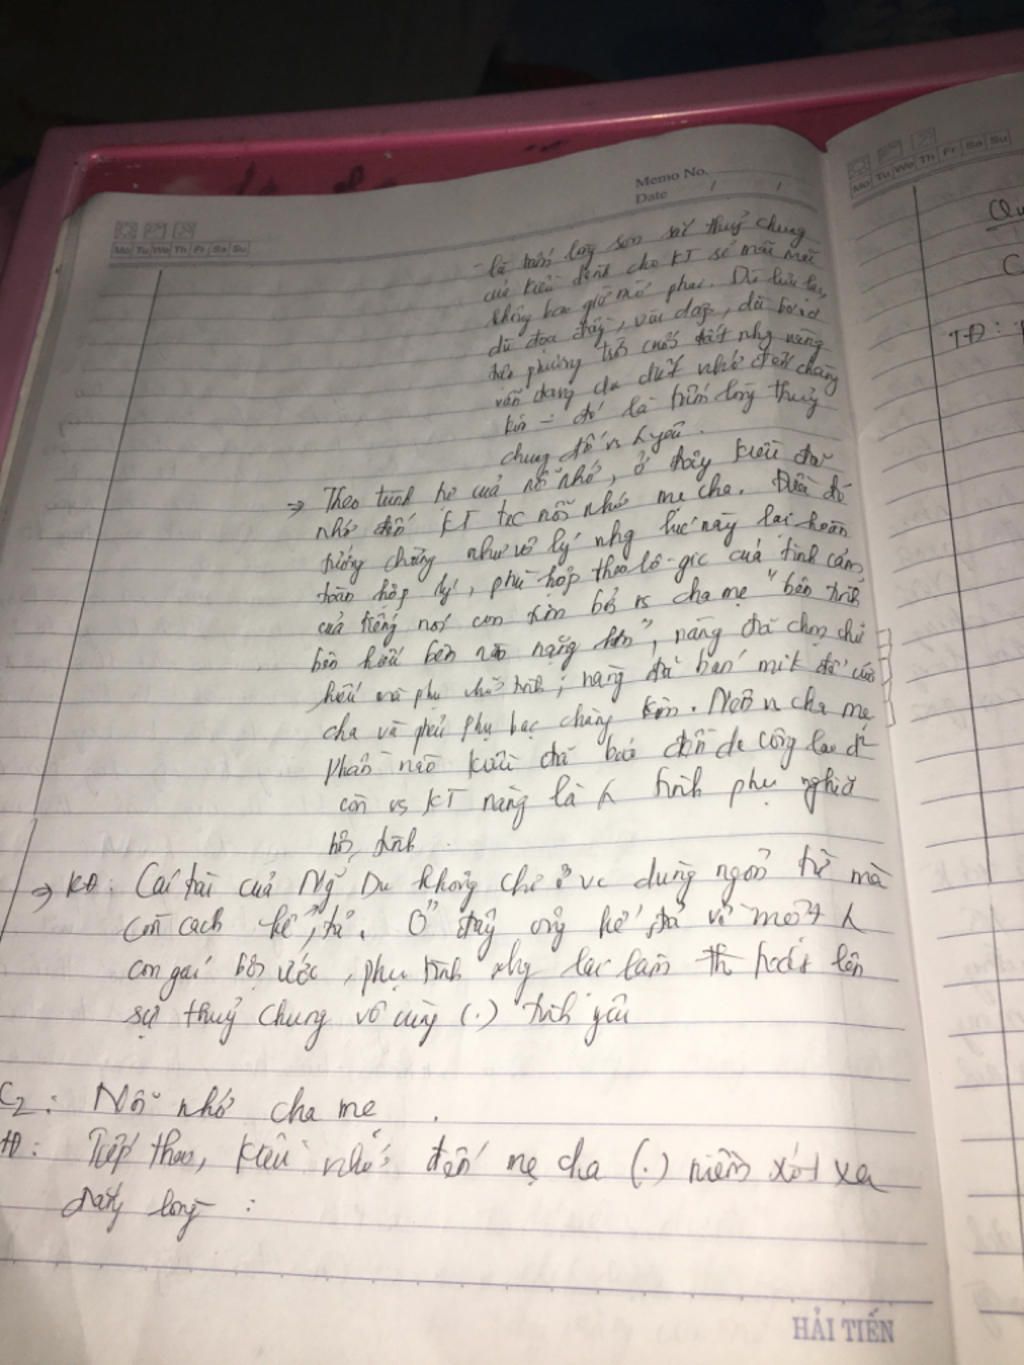 Memo No.
Date / /
Mo Tu We Th Fr Sa Su
Mo Tu We Th Fr Sa Su
- là tấm lòng son sắt thuỷ chung
của Kiều dành cho KT sẽ mãi mãi
không bao giờ mờ phai. Dù
dù đoạ đầy, vùi dập, dù bơ vơ
trên phương trời cuối đất nhg nàng
vẫn đang da diết nhớ đến chàng
Kim - đó là tấm lòng thuỷ
chung đối vs t yêu.
→ Theo trình tự của nỗi nhớ, ở đây Kiều đã
nhớ đến KT trc nỗi nhớ mẹ cha. Điều đó
tưởng chừng như vô lý nhg lúc này lại hoàn
toàn hợp lý, phù hợp theo lô-gic của tình cảm,
của tiếng nói con tim bởi vs cha mẹ "bên tình
bên hiếu bên nào nặng hơn", nàng đã chọn chữ
hiếu mà phụ chữ tình; nàng đã bán mik để cứu
cha và phải phụ bạc chàng Kim. Nên n cha mẹ
phần nào Kiều đã báo đền dc công lao
còn vs KT nàng là k tình phụ nghĩa
bội tình.
→ KĐ: Cái tài của Ng~ Du không chỉ ở vc dùng ngôn từ mà
còn cách kể, tả. Ở đây ông kể, tả về một
con gái bội ước, phụ tình nhg lại làm toát lên
sự thuỷ chung vô cùng (.) tình yêu
C2: Nỗi nhớ cha mẹ.
TĐ: Tiếp theo, Kiều nhớ đến mẹ cha (.) niềm xót xa
lòng :
TĐ:
HẢI TIẾN